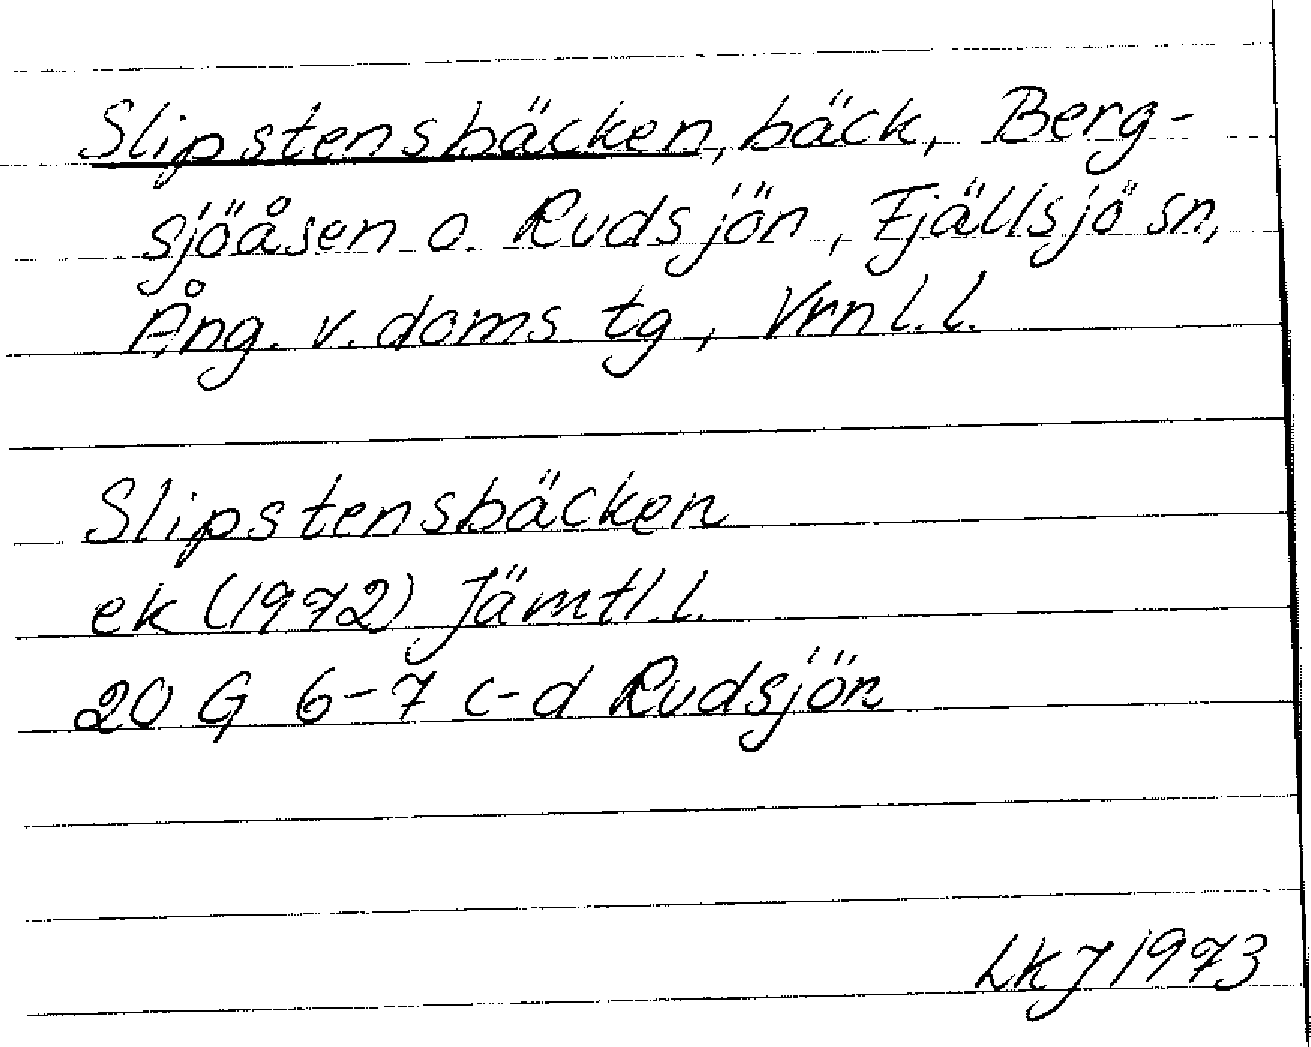 Slipstensbäcken, bäck, Berg-
sjöåsen o. Rudsjön, Fjällsjö sn,
Ång. v. doms tg, Vrnl. l.
Slipstensbäcken
ek (1972) Jämtl. l.
20 G 6-7 c-d Rudsjön
LkJ 1973